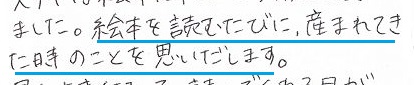 ました。絵本を読むたびに、産まれてき
た時のことを思いだします。